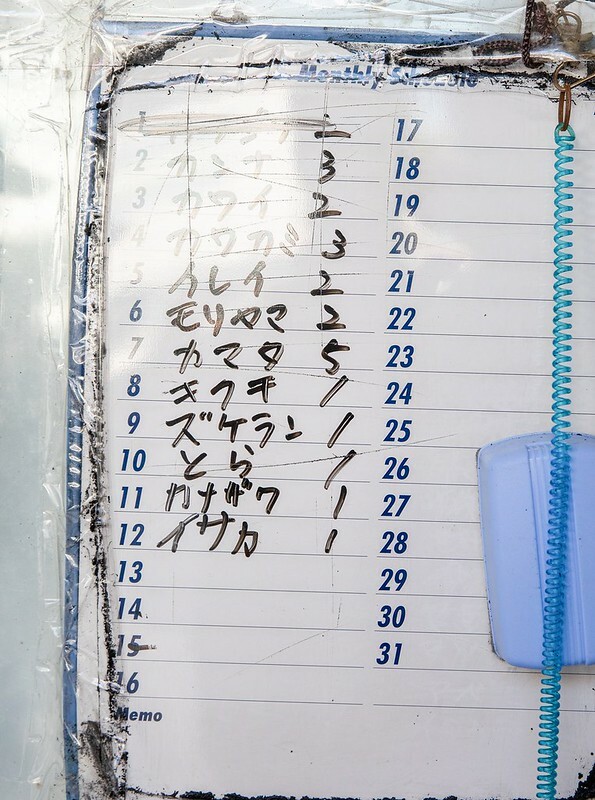 Monthly Schedule
1 2
2 カンナ 3
3 カワイ 2
4 カワカミ 3
5 イレイ 2
6 モリヤマ 2
7 カマタ 5
8 キクチ 1
9 ズケラン 1
10 とら 1
11 カナザワ 1
12 イサカ 1
13
14
15
16
Memo
17
18
19
20
21
22
23
24
25
26
27
28
29
30
31